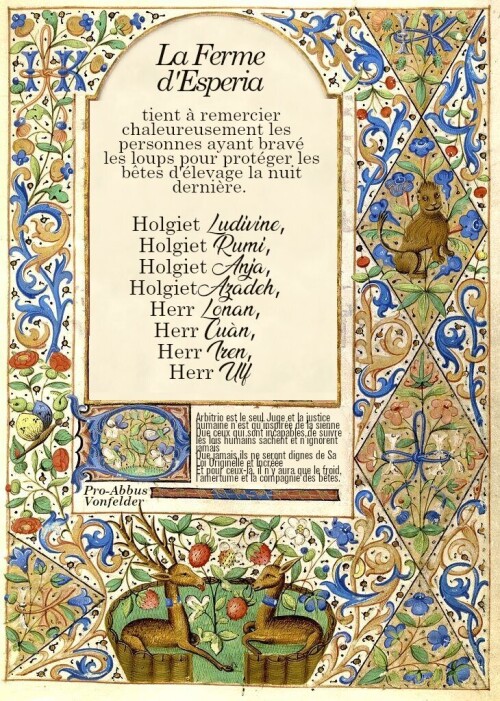 La Ferme
d'Esperia
tient à remercier
chaleureusement les
personnes ayant bravé
les loups pour protéger les
bêtes d'élevage la nuit
dernière.
Holgiet Ludivine,
Holgiet Rumi,
Holgiet Anja,
Holgiet Azadeh,
Herr Lonan,
Herr Cuàn,
Herr Iren,
Herr Ulf
Arbitrio est le seul Juge et la justice
humaine n'est qu'inspirée de la sienne
Que ceux qui sont incapables de suivre
les lois humains sachent et n'ignorent
jamais
Que jamais ils ne seront dignes de Sa
Loi Originelle et Incréée
Et pour ceux-là, il n'y aura que le froid,
l'amertume et la compagnie des bêtes.
Pro-Abbus
Vonfelder